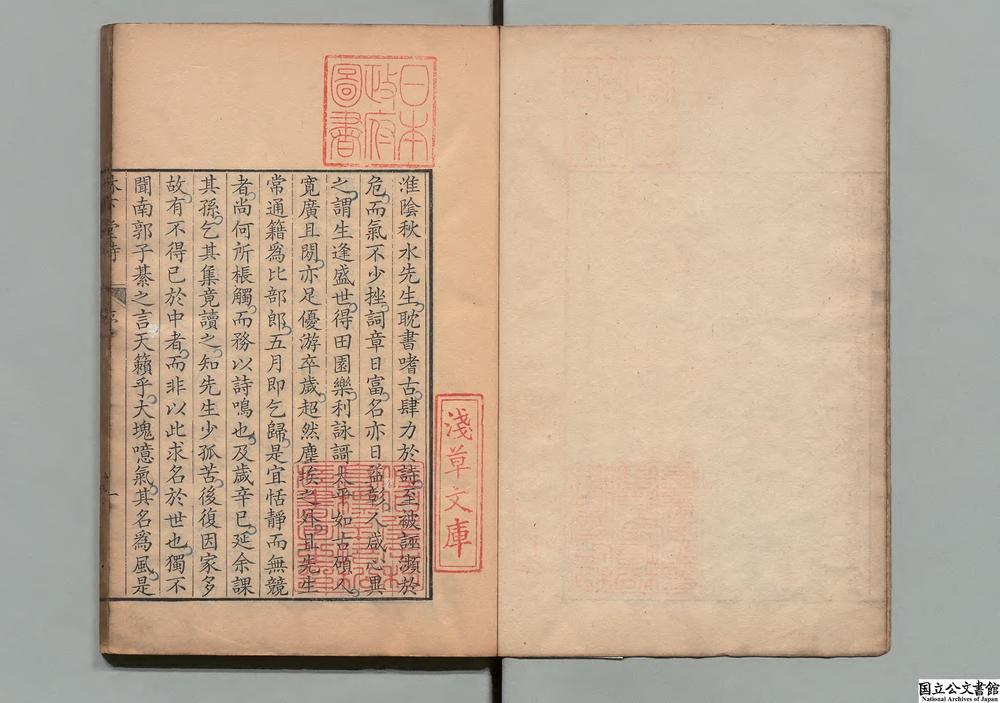 日本
政府
圖書
淺草文庫
淮陰秋水先生耽書嗜古肆力於詩至被誣瀕於
危而氣不少挫詞章日富名亦日益彰人咸心異
之謂生逢盛世得田園樂利詠謌太平如古傾人
寬廣且閎亦足優游卒歲超然塵埃之外且先生
常通籍爲比部郎五月即乞歸是宜恬靜而無競
者尚何所棖觸而務以詩鳴也及歲辛巳延余課
其孫乞其集竟讀之知先生少孤苦後復因家多
故有不得已於中者而非以此求名於世也獨不
聞南郭子綦之言天籟乎大塊噫氣其名爲風是
堂詩
一
国立公文書館
National Archives of Japan